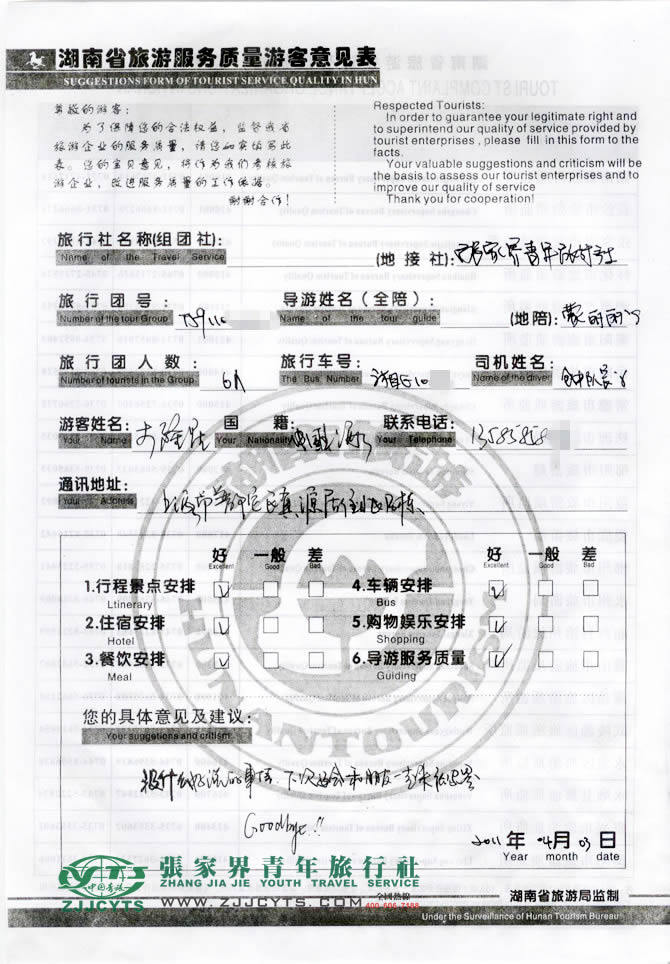 湖南省旅游服务质量游客意见表
SUGGESTIONS FORM OF TOURIST SERVICE QUALITY IN HUN
尊敬的游客：
为了保障您的合法权益，监督我省
旅游企业的服务质量，请您如实填写此
表。您的宝贝意见，将作为我们考核旅
游企业，改进服务质量的工作依据。
谢谢合作！
Respected Tourists:
In order to guarantee your legitimate right and
to superintend our quality of service provided by
tourist enterprises , please fill in this form to the
facts.
Your valuable suggestions and criticism will be
the basis to assess our tourist enterprises and to
improve our quality of service
Thank you for cooperation!
旅行社名称(组团社): (地接社): 张家界青年旅行社
Name of the Travel Service
旅行团号： 导游姓名(全陪)： (地陪):
Number of the tour Group Name of the tour guide
旅行团人数： 6人 旅行车号： 司机姓名：
Number of tourists in the Group The Bus Number Name of the driver
游客姓名: 国籍: 联系电话: 13585858
Your Name Your Nationality Your Telephone
通讯地址: 上海市普陀区真源
Your Address
好 一般 差 好 一般 差
Excellent Good Bad Excellent Good Bad
1.行程景点安排 4.车辆安排
Ltinerary Bus
2.住宿安排 5.购物娱乐安排
Hotel Shopping
3.餐饮安排 6.导游服务质量
Meal Guiding
HUNAN TOURISM
您的具体意见及建议:
Your suggetions and critism.
没什么好说的
Goodbye!!
2011 年 04 月 03 日
Year month date
中国青旅
ZJJCYTS
張家界青年旅行社
ZHANG JIA JIE YOUTH TRAVEL SERVICE
WWW.ZJJCYTS.COM 全国热线 400-606-7388
湖南省旅游局监制
Under the Surveillance of Hunan Tourism Bureau